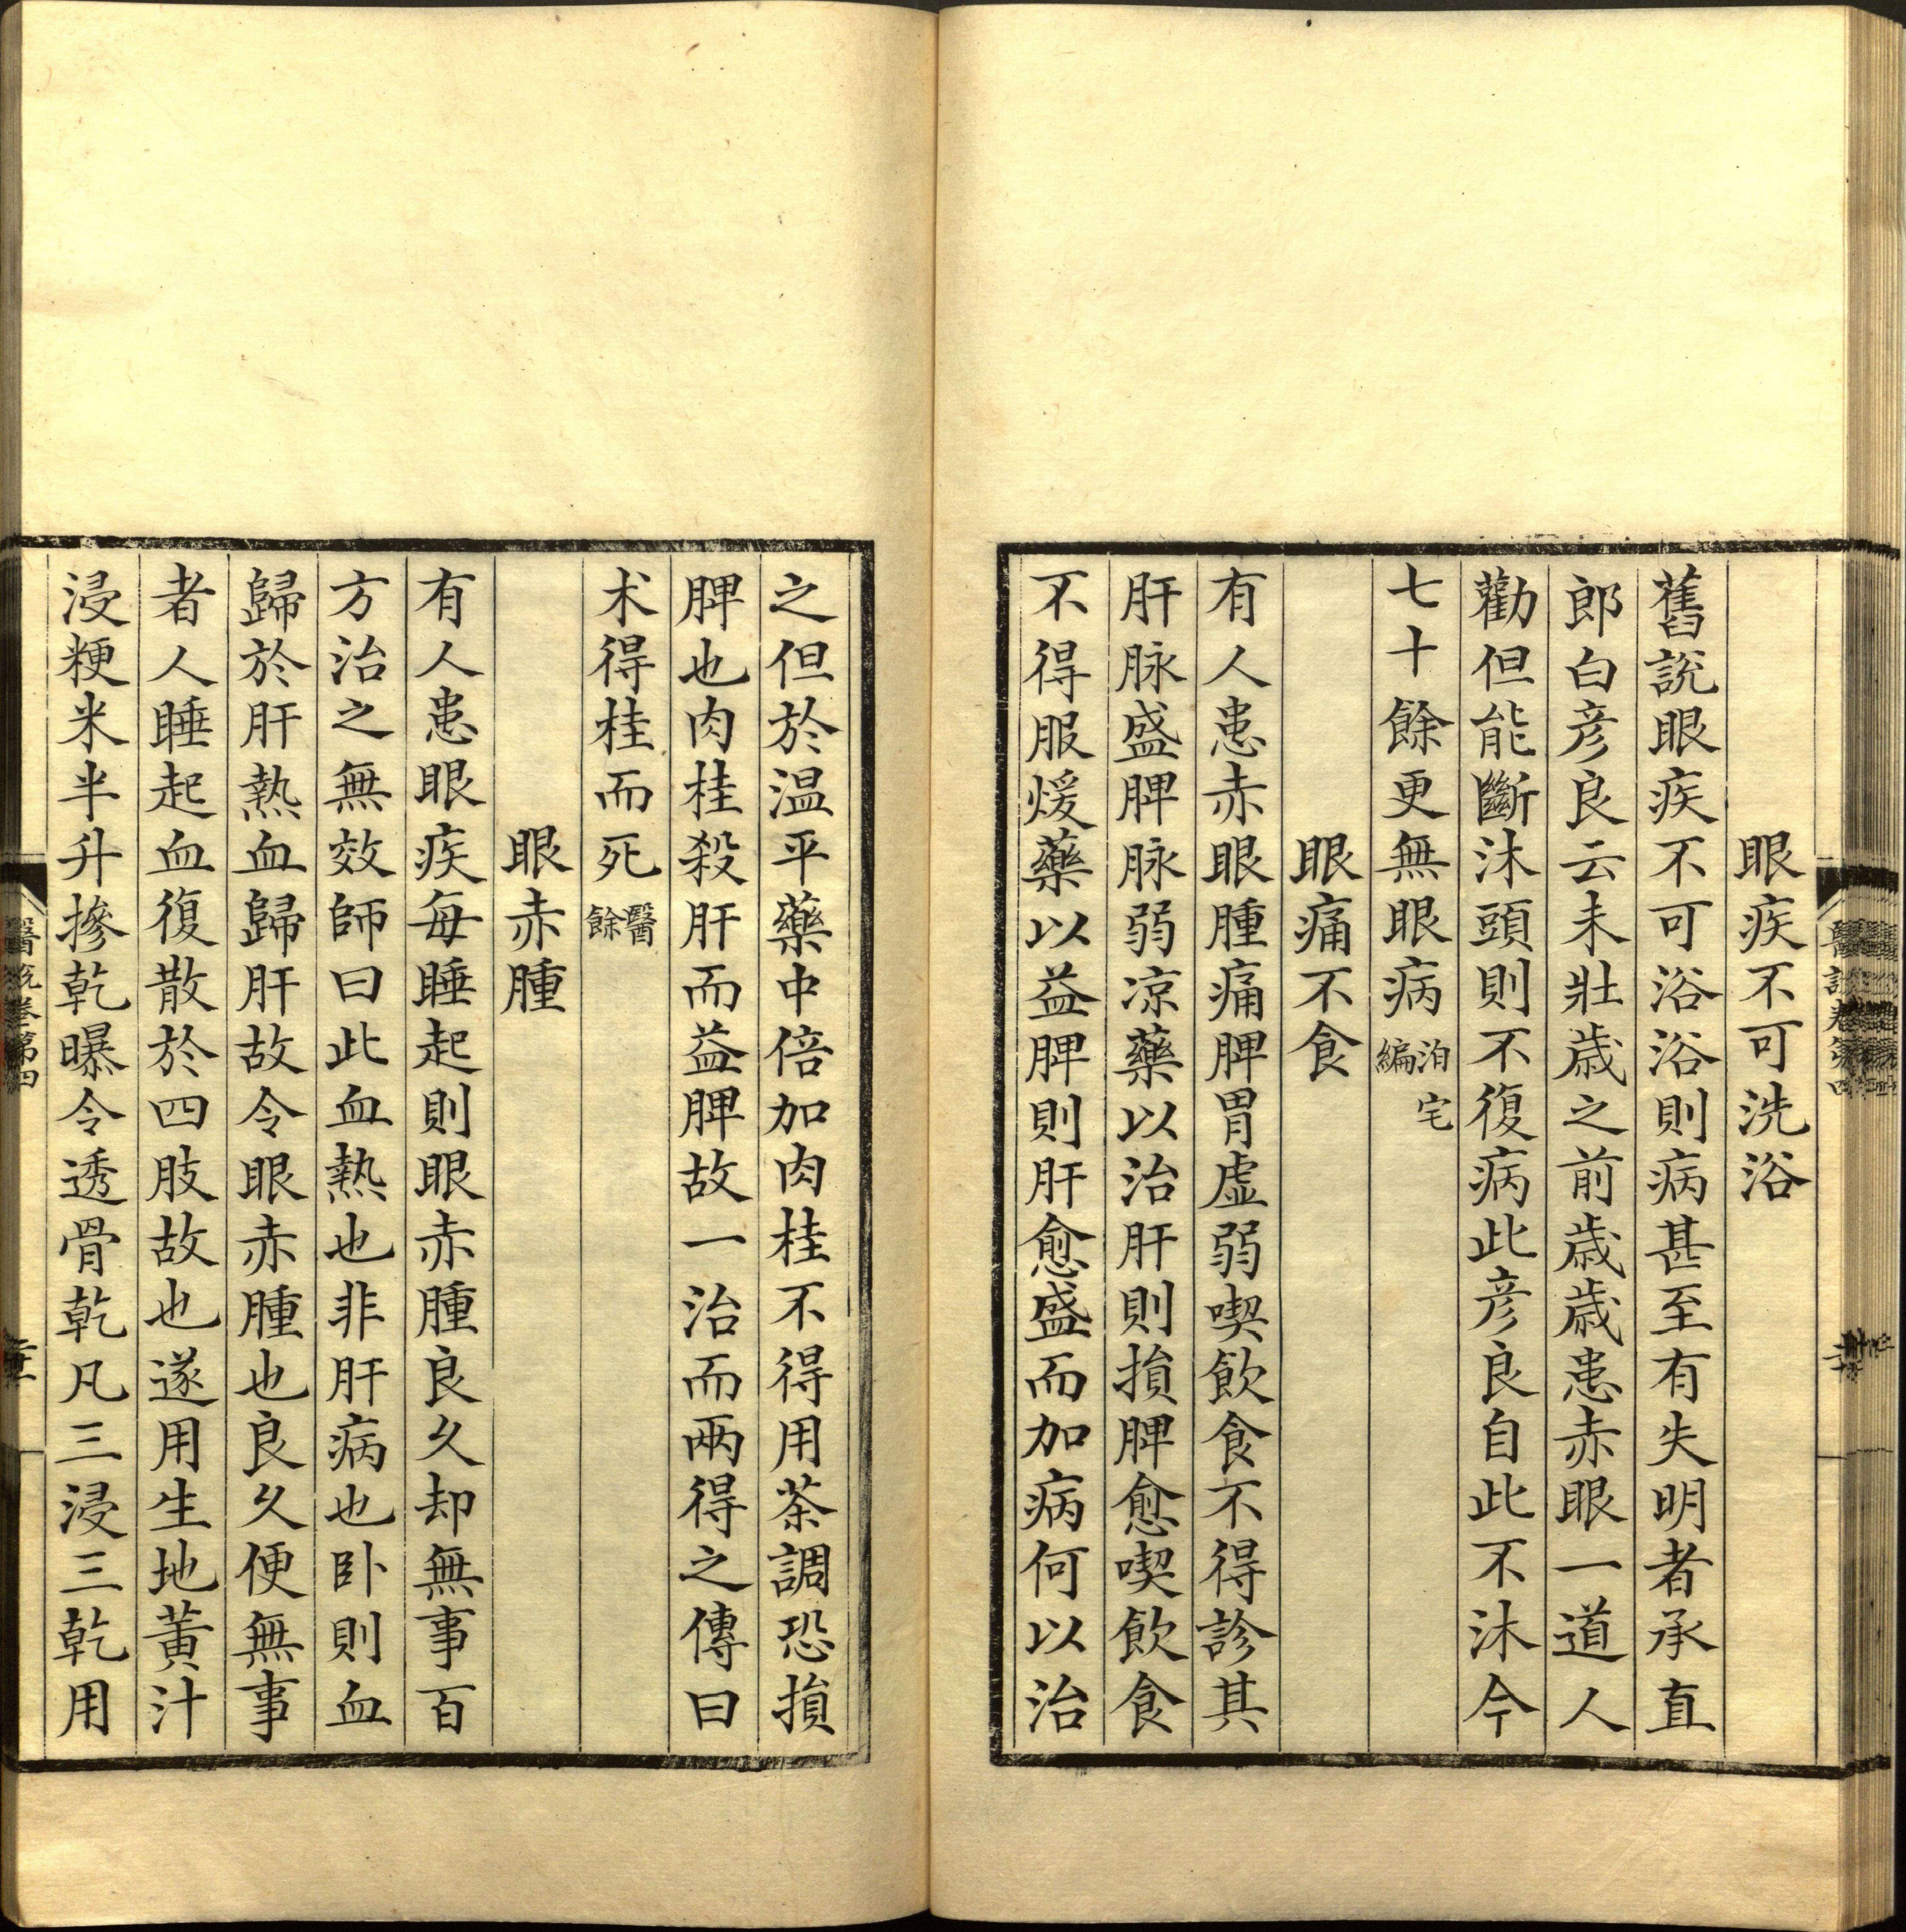 眼疾不可洗浴
舊說眼疾不可浴浴則病甚至有失明者承直
郎白彦良云未壯歳之前歳歳患赤眼一道人
勸但能斷沐頭則不復病此彦良自此不沐今
七十餘更無眼病泊宅編
眼痛不食
有人患赤眼腫痛脾胃虚弱喫飲食不得診其
肝脉盛脾脉弱凉藥以治肝則損脾愈喫飲食
不得服煖藥以益脾則肝愈盛而加病何以治
之但於温平藥中倍加肉桂不得用茶調恐損
脾也肉桂殺肝而益脾故一治而兩得之傳曰
木得桂而死醫餘
眼赤腫
有人患眼疾每睡起則眼赤腫良久却無事百
方治之無效師曰此血熱也非肝病也卧則血
歸於肝熱血歸肝故令眼赤腫也良久便無事
者人睡起血復散於四肢故也遂用生地黃汁
浸粳米半升摻乾曝令透骨乾凡三浸三乾用
醫説卷第四